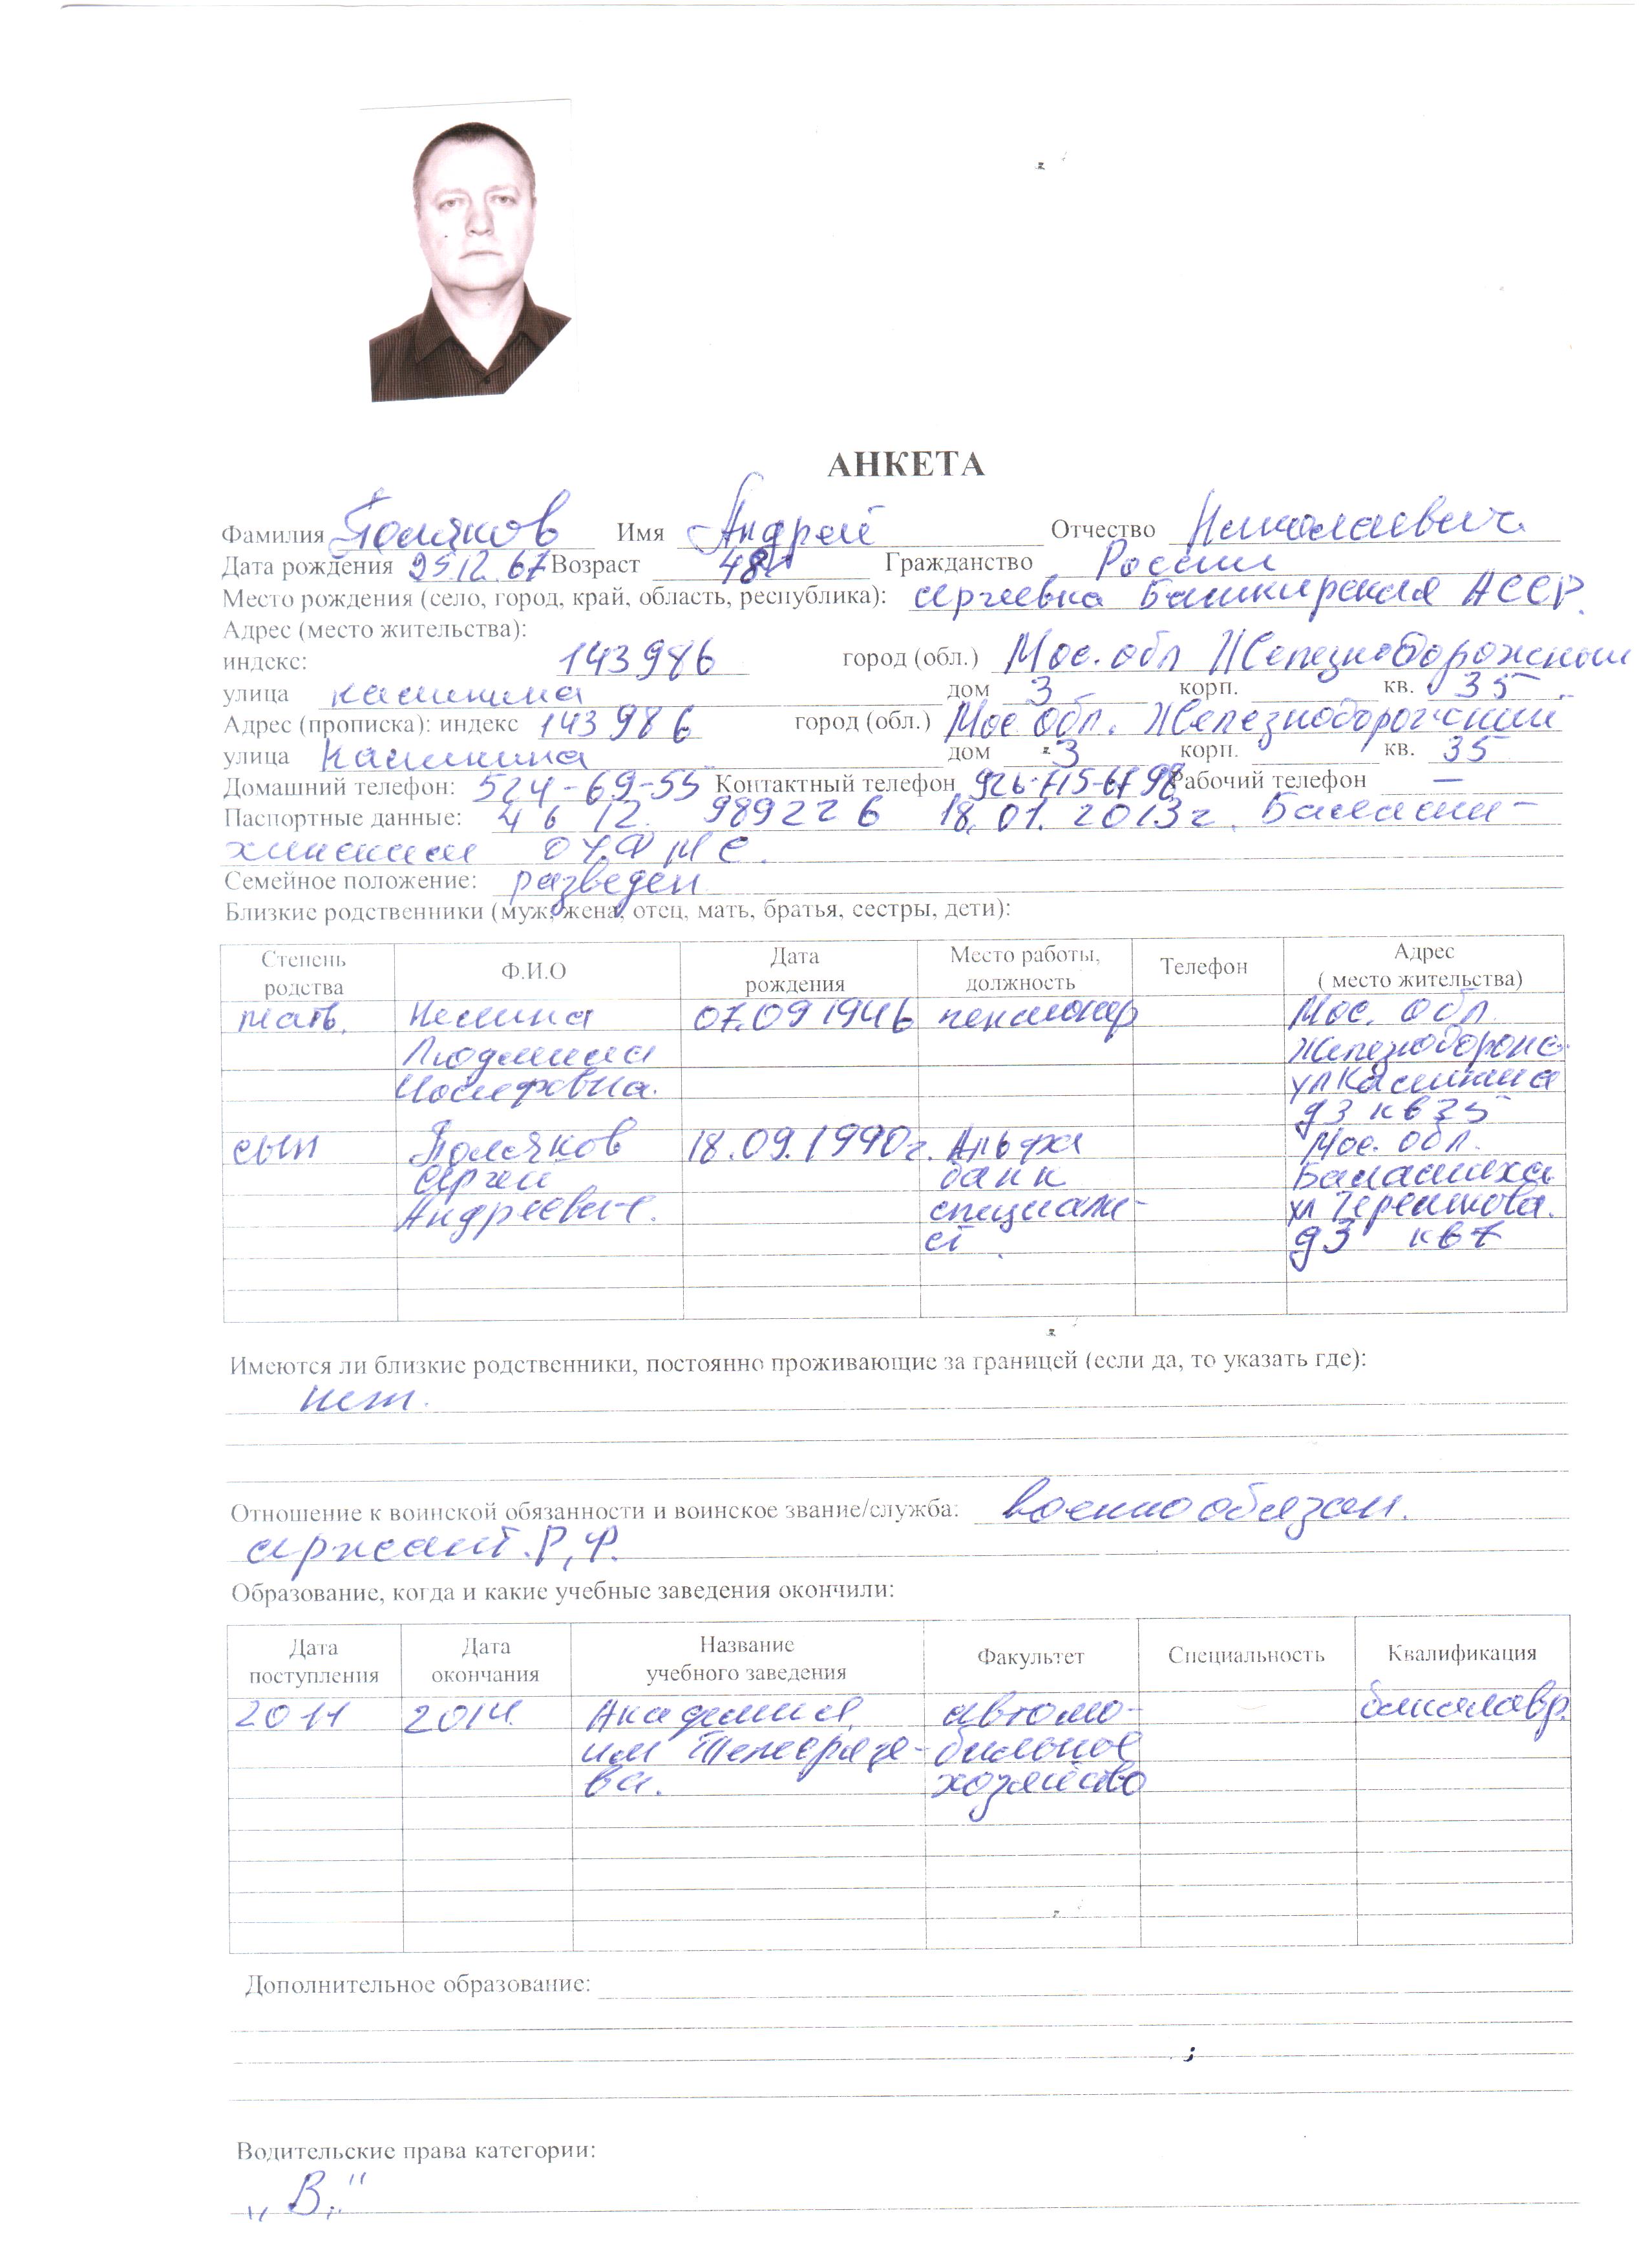 АНКЕТА
Фамилия Поляков Имя Андрей Отчество Николаевич
Дата рождения 25.12.67 Возраст 48 Гражданство России
Место рождения (село, город, край, область, республика): Сергеевка Башкирская АССР.
Адрес (место жительства):
индекс: 143986 город (обл.) Мос. обл Железнодорожный
улица Калинина дом 3 корп. кв. 35
Адрес (прописка): индекс 143986 город (обл.) Мос обл. Железнодорожный
улица Калинина дом 3 корп. кв. 35
Домашний телефон: 524-69-55 Контактный телефон 926-715-67 98 Рабочий телефон —
Паспортные данные: 46 12. 989226 18.01.2013г. Балаши-
хинским ОУФМС.
Семейное положение: разведен
Близкие родственники (муж, жена, отец, мать, братья, сестры, дети):
Степень родства Ф.И.О Дата рождения Место работы, должность Телефон Адрес ( место жительства)
мать. 07.09 1946 пенсионер Мос. обл.
Людмила
Иосифовна. ул Калинина
д3 кв35
сын Поляков 18.09.1990г. Альфа Мос. обл.
Сергей банк Балашиха
Андреевич. специали-
ст. д3 кв7
Имеются ли близкие родственники, постоянно проживающие за границей (если да, то указать где):
нет.
Отношение к воинской обязанности и воинское звание/служба: военнообязан.
сержант. Р,Ф.
Образование, когда и какие учебные заведения окончили:
Дата поступления Дата окончания Название учебного заведения Факультет Специальность Квалификация
2011 2014 Академия автомо- бакалавр.
им бильное
ва. хозяйство
Дополнительное образование:
Водительские права категории:
„В."